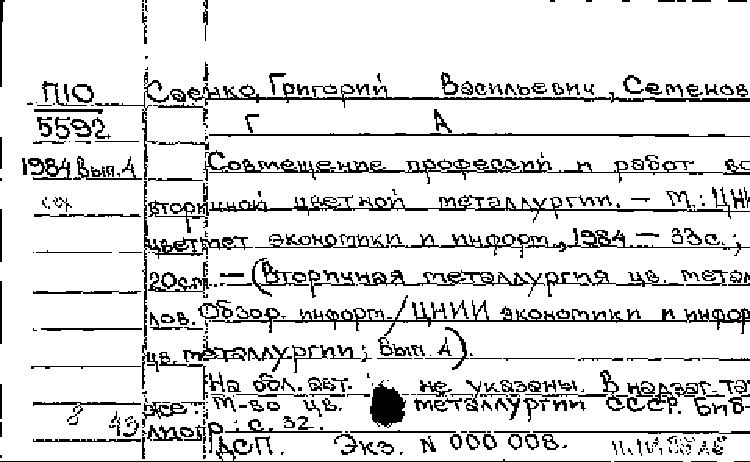 П10 Саенко, Григорий Васильевич, Семенов
5592 Г А
1984 Вып.4 Совмещение профессий и работ во
сх вторичной цветной металлургии. — М.: ЦНИ
цветмет экономики и информ., 1984. — 33с.;
20см. — (Вторичная металлургия цв. метал
лов. Обзор. информ. / ЦНИИ экономики и инфор
цв. металлургии; Вып. 4).
На обл. авт. не указаны. В надзаг. та
8 43 кже: М-во цв. металлургии СССР. Биб-
лиогр.: с. 32.
ДСП. Экз. N 000 008.